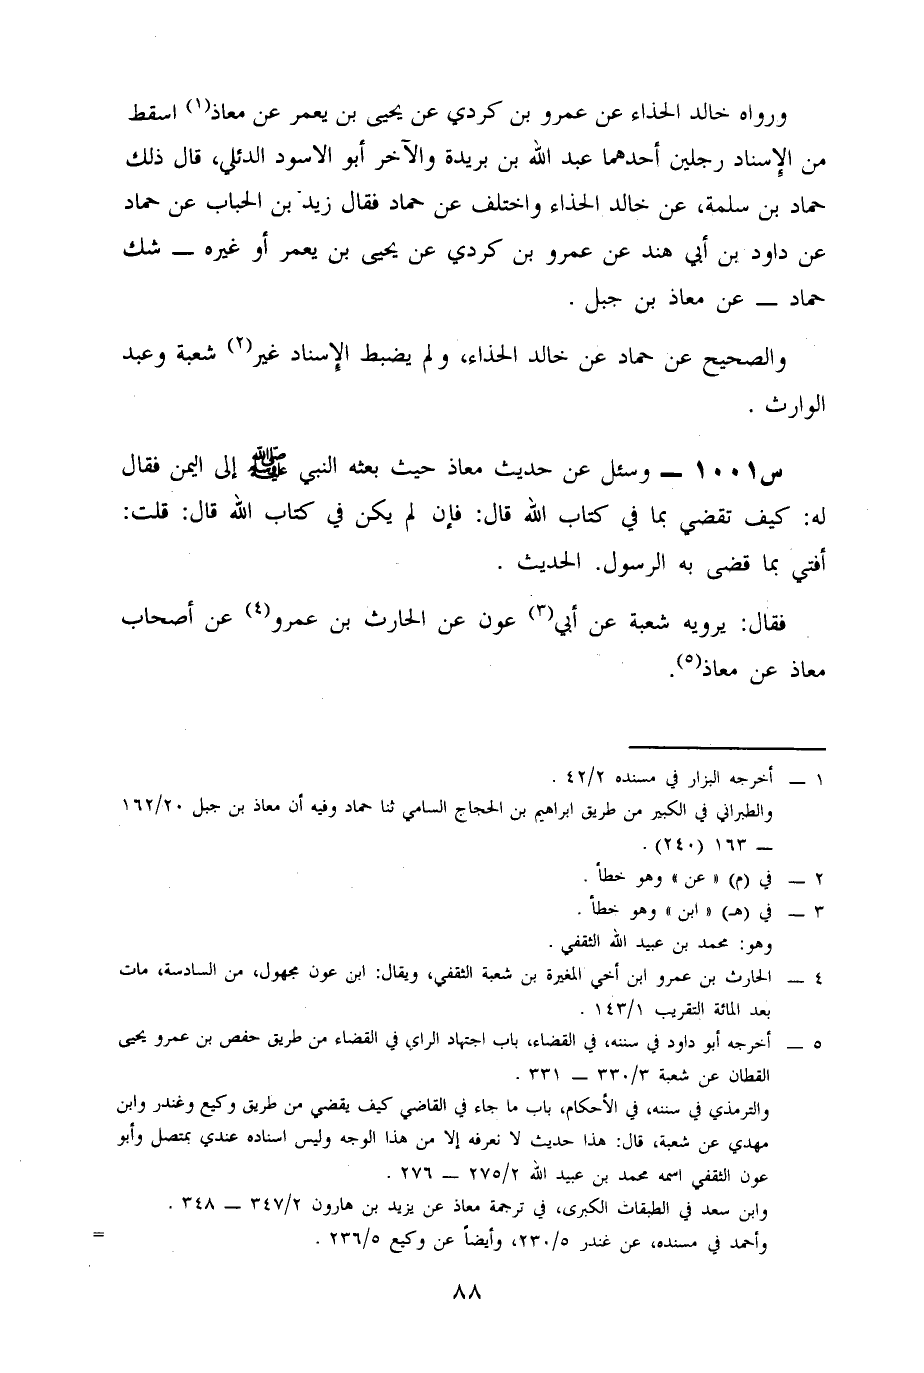 ورواه خالد الحذاء عن عمرو بن كردي عن يحيى بن يعمر عن معاذ(١) اسقط
من الإسناد رجلين أحدهما عبد الله بن بريدة والآخر أبو الاسود الدئلي، قال ذلك
حماد بن سلمة، عن خالد الحذاء واختلف عن حماد فقال زيد بن الحباب عن حماد
عن داود بن أبي هند عن عمرو بن كردي عن يحيى بن يعمر أو غيره ــ شك
حماد ــ عن معاذ بن جبل .
والصحيح عن حماد عن خالد الحذاء، ولم يضبط الإسناد غير(٢) شعبة وعبد
الوارث .
س١٠٠١ ــ وسئل عن حديث معاذ حيث بعثه النبي ﷺ إلى اليمن فقال
له: كيف تقضي بما في كتاب الله قال: فإن لم يكن في كتاب الله قال: قلت:
أفتي بما قضى به الرسول. الحديث .
فقال: يرويه شعبة عن أبي(٣) عون عن الحارث بن عمرو(٤) عن أصحاب
معاذ عن معاذ(٥).
١ ــ أخرجه البزار في مسنده ٤٢/٢ .
والطبراني في الكبير من طريق ابراهيم بن الحجاج السامي ثنا حماد وفيه أن معاذ بن جبل ١٦٢/٢٠
ــ ١٦٣ (٢٤٠) .
٢ ــ في (م) «عن» وهو خطأ .
٣ ــ في (هـ) «ابن» وهو خطأ .
وهو: محمد بن عبيد الله الثقفي .
٤ ــ الحارث بن عمرو ابن أخي المغيرة بن شعبة الثقفي، ويقال: ابن عون مجهول، من السادسة، مات
بعد المائة التقريب ١٤٣/١ .
٥ ــ أخرجه أبو داود في سننه، في القضاء، باب اجتهاد الراي في القضاء من طريق حفص بن عمرو يحيى
القطان عن شعبة ٣٣٠/٣ ــ ٣٣١ .
والترمذي في سننه، في الأحكام، باب ما جاء في القاضي كيف يقضي من طريق وكيع وغندر وابن
مهدي عن شعبة، قال: هذا حديث لا نعرفه إلا من هذا الوجه وليس اسناده عندي بمتصل وأبو
عون الثقفي اسمه محمد بن عبيد الله ٢٧٥/٢ ــ ٢٧٦ .
وابن سعد في الطبقات الكبرى، في ترجمة معاذ عن يزيد بن هارون ٣٤٧/٢ ــ ٣٤٨ .
وأحمد في مسنده، عن غندر ٢٣٠/٥، وأيضاً عن وكيع ٢٣٦/٥ .
=
٨٨